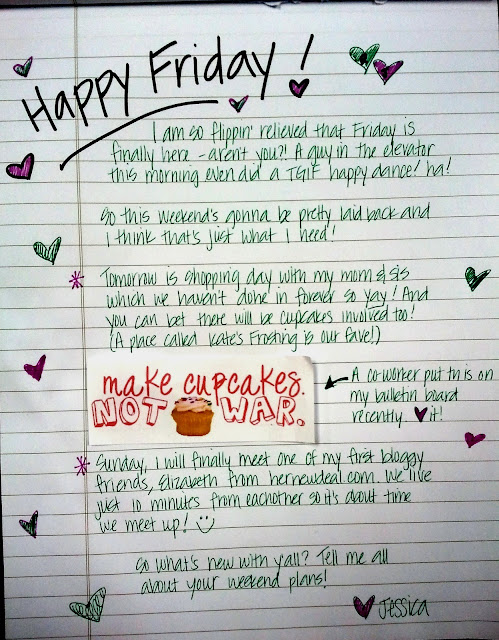 Happy Friday!
I am so flippin' relieved that Friday is
finally here - aren't you?! A guy in the elevator
this morning even did a TGIF happy dance! ha!
So this weekend's gonna be pretty laid back and
I think that's just what I need!
* Tomorrow is shopping day with my mom & sis
which we haven't done in forever so yay! And
you can bet there will be cupcakes involved too!
(A place called Kate's Frosting is our fave!)
make cupcakes.
NOT WAR.
A co-worker put this on
my bulletin board
recently. ♥ it!
* Sunday, I will finally meet one of my first bloggy
friends, Elizabeth from hernewdeal.com. We live
just 10 minutes from eachother so it's about time
we meet up! :)
So what's new with y'all? Tell me all
about your weekend plans!
♥ Jessica